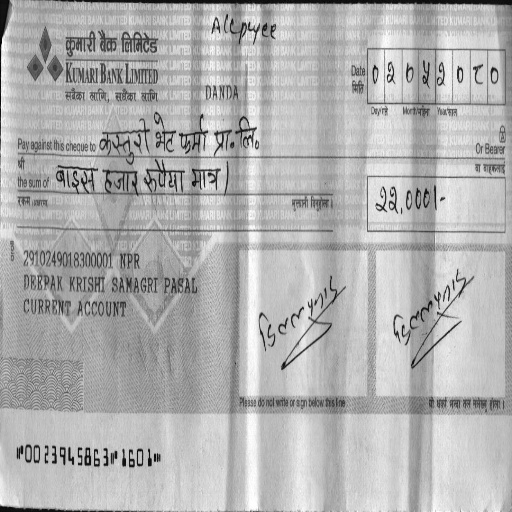 A/c payee
कुमारी बैंक लिमिटेड
KUMARI BANK LIMITED
सबैका लागि, सधैंका लागि
DANDA
Date मिति 0 2 0 5 2 0 8 0
Day/गते Month/महिना Year/साल
Pay against this cheque to कस्तुरी भेट फर्मा प्रा. लि.
Or Bearer
श्री
वा वाहकलाई
the sum of बाइस हजार रूपैया मात्र।
रकम
भुक्तानी दिनुहोला।
22,000/-
2910249018300001 NPR
DEEPAK KRISHI SAMAGRI PASAL
CURRENT ACCOUNT
Please do not write or sign below this line
⑈0023945863⑈1601⑈